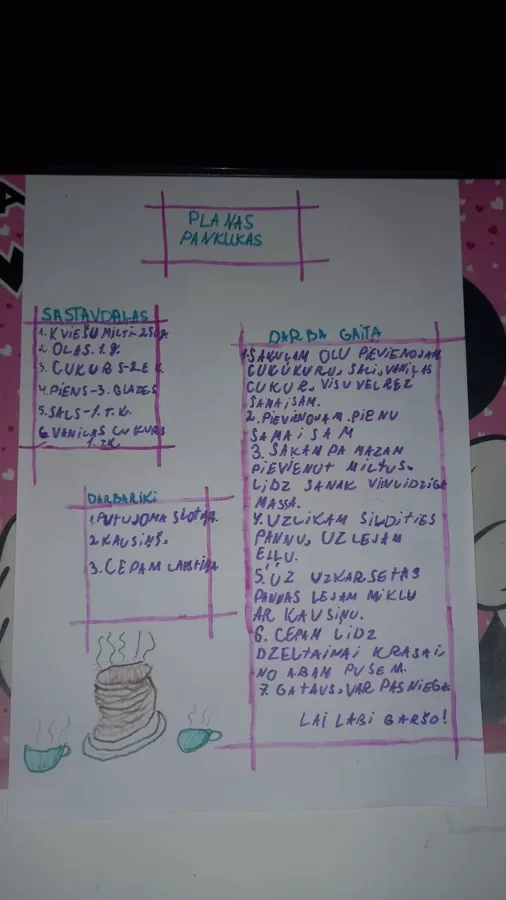 PLANAS
PANKUKAS
SASTAVDALAS
1. KVIEŠU MILTI-250g
2. OLAS.1.g.
3. CUKURS-2.E K.
4. PIENS-3. GLAZES
5. SALS-1.T.K.
6. VANILAS CUKURS
1.T.K.
DARBARIKI
1. PUTUJOMA SLOTIŅA.
2. KAUSIŅŠ,
3. CEPAM LAPSTIŅA
DARBA GAITA
1. SAKULAM OLU PIEVIENOJAM
CUKUKURU, SALI, VANILAS
CUKUR, VISU VELREZ
SAMAISAM.
2. PIEVIENOJAM. PIENU
SAMAISAM
3. SAKAM PA MAZAM
PIEVIENOT MILTUS.
LIDZ SANAK VINLIDZIGA
MASSA.
4. UZLIKAM SILDITIES
PANNU, UZLEJAM
ELLU.
5. UZ UZKARSETAS
PANNAS LEJAM MIKLU
AR KAUSINU.
6. CEPAM LIDZ
DZELTAINAI KRASAI,
NO ABAM PUSEM.
7. GATAVS, VAR PASNIEGT
LAI LABI GARŠO!